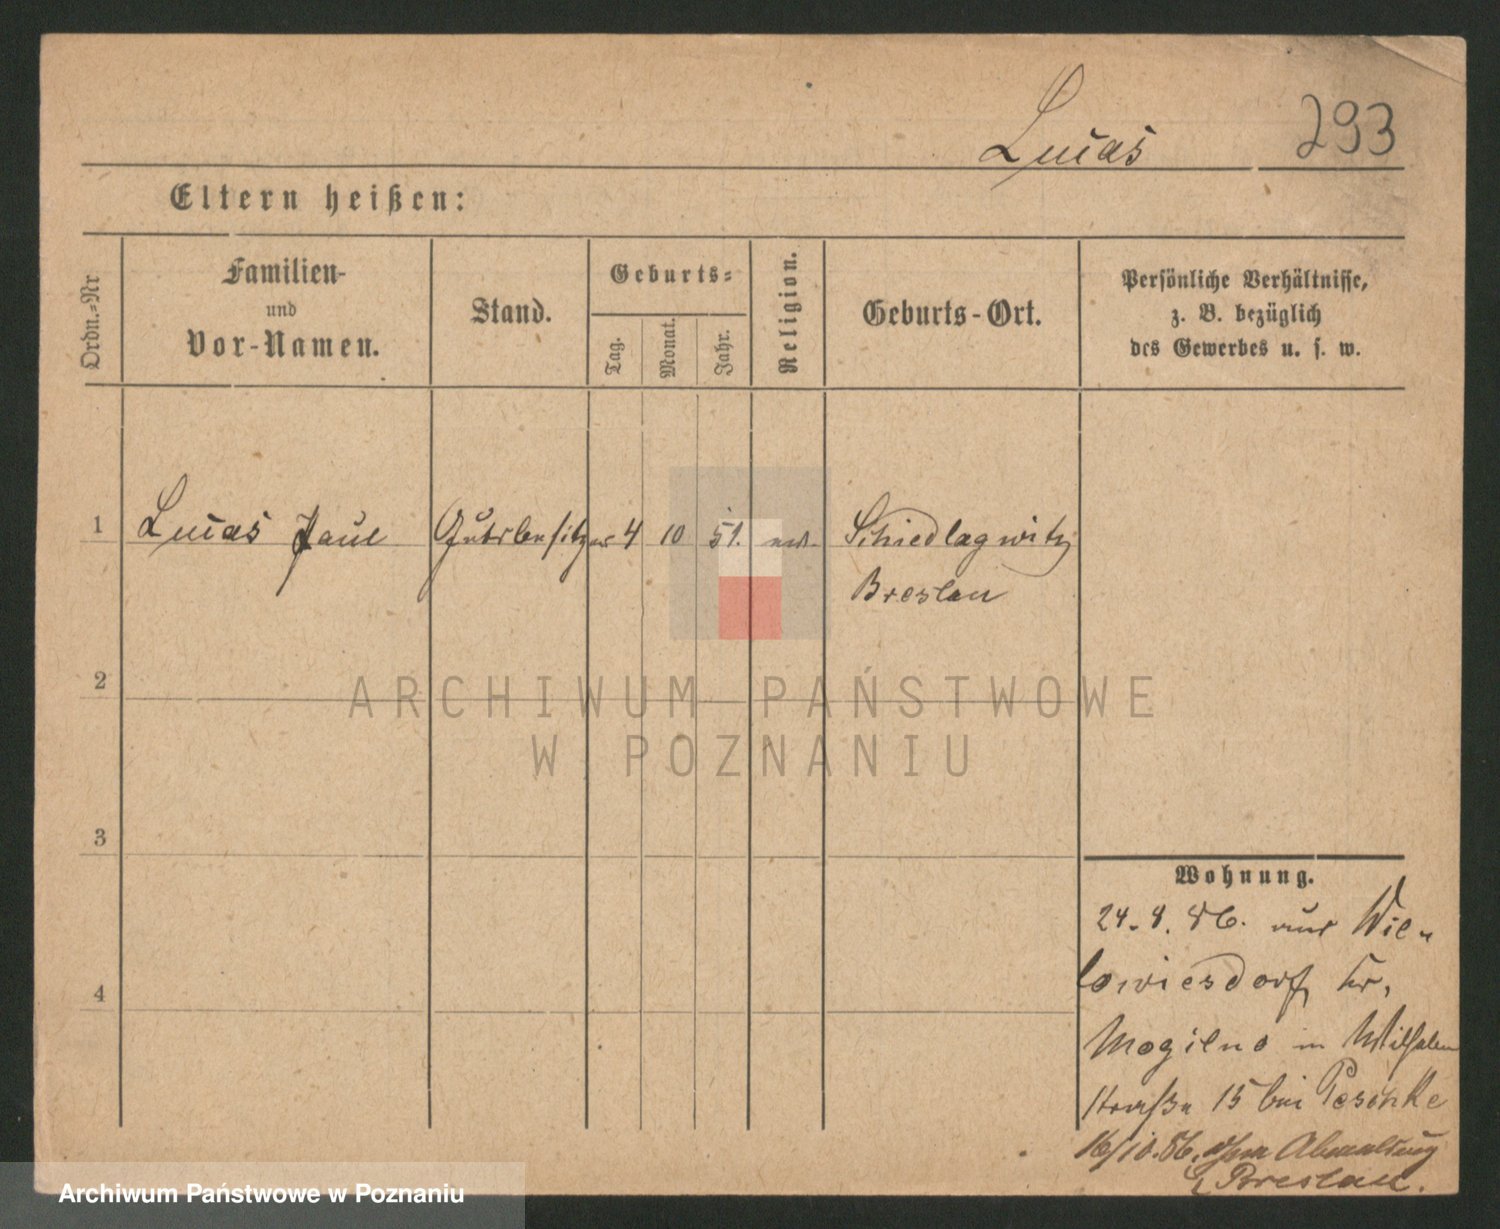 Lucas 293
Eltern heißen:
Ordn.-Nr
Familien-
und
Vor-Namen.
Stand.
Geburts-
Tag.
Monat.
Jahr.
Religion.
Geburts-Ort.
Persönliche Verhältnisse,
z. B. bezüglich
des Gewerbes u. s. w.
1 Lucas Paul Gutsbesitzer 4 10 51. Schiedlagwitz
Breslau
2
ARCHIWUM PAŃSTWOWE
W POZNANIU
3
4
Wohnung.
24. 8. 86. aus Wie-
lowiesdorf, Kr.
Mogilno in Wilhelm
straße 15 bei Peschke
16/10.86. ohne Abmeldung
Breslau.
Archiwum Państwowe w Poznaniu